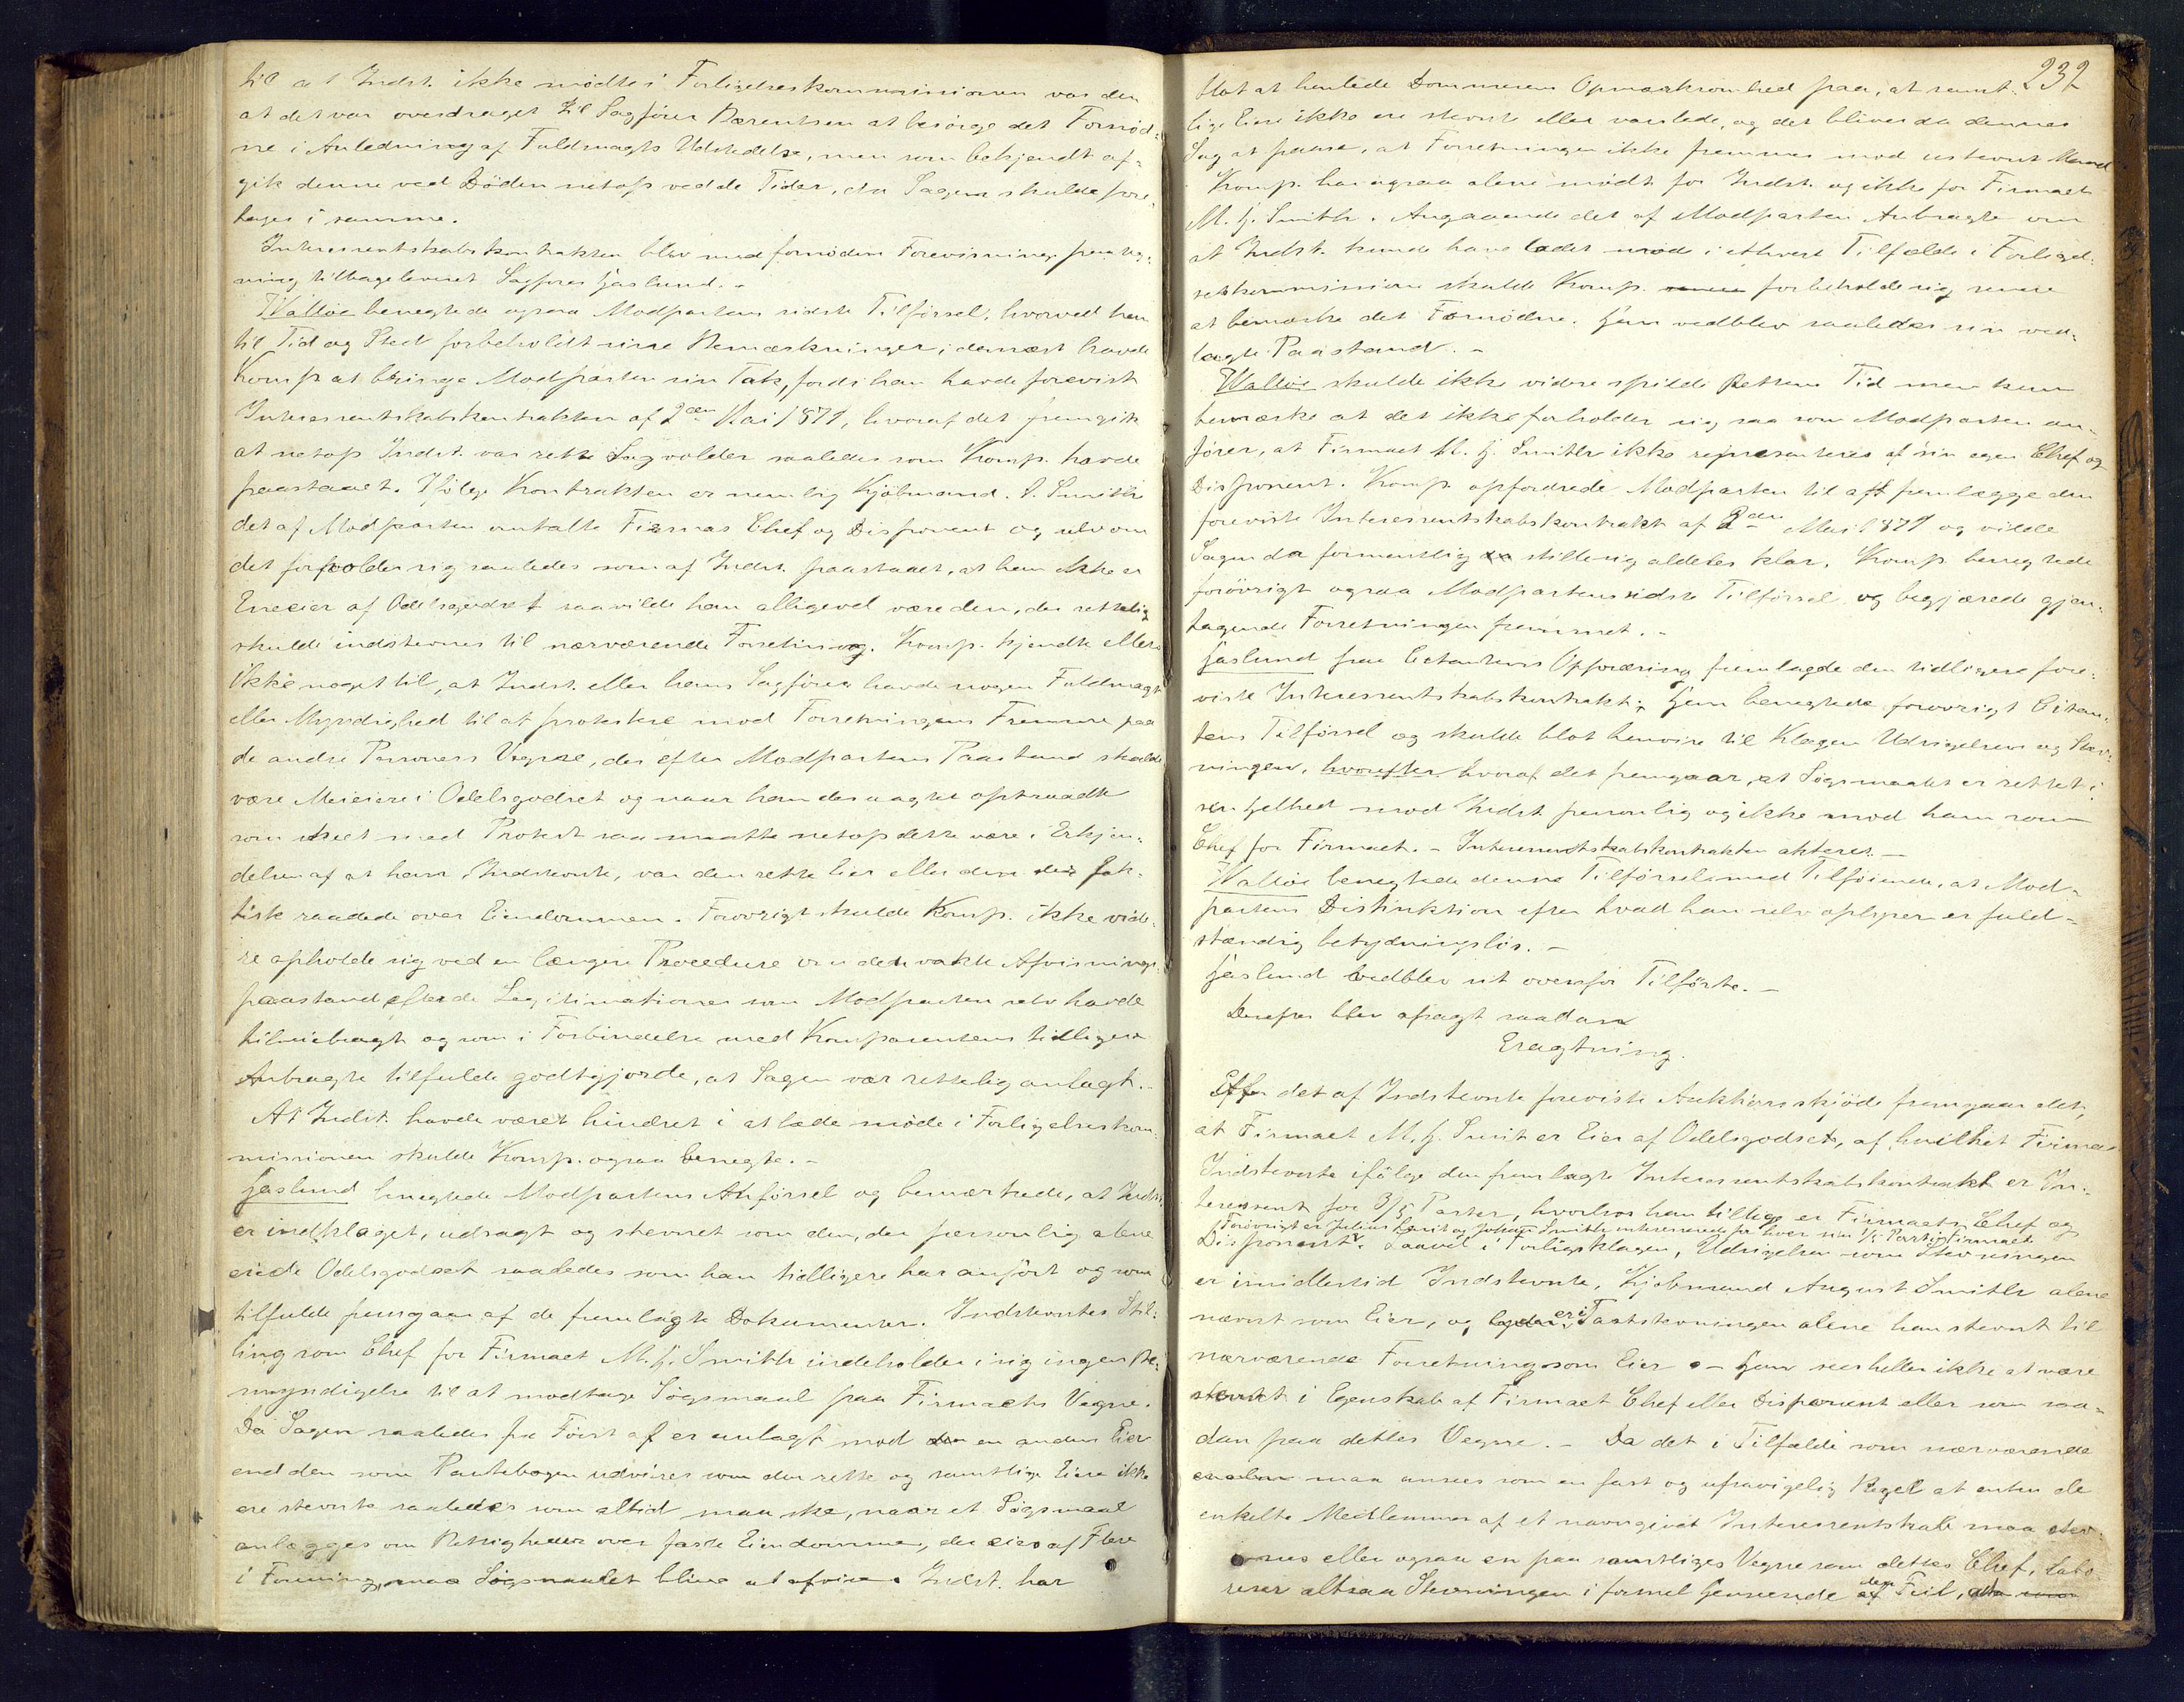 til at Indst. ikke mødte i Forligelseskommissionen var den
at det var overdraget til Sagfører Bærentsen at besørge det Fornød-
ne i Anledning af Fuldmagts Udstedelse, men som bekjendt af-
gik denne ved Döden netop ved de Tider, da Sagen skulde fore-
tages i samme.
Interessentskabskontrakten blev med fornöden Forevisnings paateg-
ning tilbageleveret Sagförer Haslund. -
Walløe benegtede ogsaa Modpartens sidste Tilførsel, hvorved han
til Tid og Sted forbeholdt sine Bemærkninger; dernæst havde
Komp at bringe Modparten sin Tak, fordi han havde forevist
Interessentskabskontrakten af 2den Mai 1871, hvoraf det fremgik
at netop Indst. var rette Sagvolder saaledes som Komp. havde
paastaaet. Ifølge Kontrakten er nemlig Kjöbmand A. Smith
det af Modparten omtalte Firmas Chef og Disponent og selv om
det forholder sig saaledes som af Indst. paastaaet, at han ikke er
Eneeier af Odelsgodset saa vilde han alligevel være den, der rettelig
skulde indstevnes til nærværende Forretning. Komp. kjendte ellers
ikke noget til, at Indst. eller hans Sagfører havde nogen Fuldmagt
eller Myndighed til at protestere mod Forretningens Fremme paa
de andre Personers Vegne, der efter Modpartens Paastand skulde
være Meieiere i Odelsgodset og naar han desuagtet optraadte
som skeet med Protest saa maatte netop dette være i Erkjen-
delsen af at han, Indstevnte, var den rette Eier eller den der fak-
tisk raadede over Eiendommen. Forövrigt skulde Komp. ikke vide-
re opholde sig ved en længere Procedure om den vakte Afvisnings-
paastand efter de Legitimationer som Modparten selv havde
tilveiebragt og som i Forbindelse med Komparentens tidligere
Anbragte tilfulde godtgjorde, at Sagen var rettelig anlagt. -
At Indst. havde været hindret i at lade møde i Forligelseskom-
missionen skulde Komp. ogsaa benegte. -
Haslund benegtede Modpartens Anförsel og bemærkede, at Indst.
er indklaget, udsagt og stevnet som den, der personlig alene
eiede Odelsgodset saaledes som han tidligere har anført og som
tilfulde fremgaar af de fremlagte Dokumenter. Indstevntes Stil-
ling som Chef for Firmaet M. H. Smith indeholder i sig ingen Be-
myndigelse til at modtage Søgsmaal paa Firmaets Vegne.
Da Sagen saaledes fra Først af er anlagt mod en anden Eier
end den som Pantebogen udviser som den rette og samtlige Eiere ikke
ere stevnte saaledes som altid maa ske, naar et Søgsmaal
anlægges om Rettigheder over faste Eiendomme, der eies af Flere
i Forening, maa Søgsmaalet blive at afvise. Indst. har
232
blot at henlede Dommerens Opmærksomhed paa, at samt-
lige Eiere ikke ere stevnte eller varslede, og det bliver da dennes
Sag at paase, at Forretningen ikke fremmes mod ustevnt Mand
Komp. har ogsaa alene mødt for Indst. og ikke for Firmaet
M. H. Smith. Angaaende det af Modparten Anbragte om
at Indst. kunde have ladet møde i ethvert Tilfælde i Forligel-
seskommissionen skulde Komp. forbeholde sig senere
at bemærke det Fornødne. Han vedblev saaledes sin ned-
lagte Paastand. -
Walløe skulde ikke videre spilde Rettens Tid men kun
bemærke at det ikke forholder sig saa som Modparten an-
fører, at Firmaet M. H. Smith ikke representeres af sin egen Chef og
Disponent. Komp. opfordrede Modparten til at fremlægge den
foreviste Interessentskabskontrakt af 2den Mai 1871 og vilde
Sagen da formentlig stille sig aldeles klar. Komp. benegtede
forövrigt ogsaa Modpartens sidste Tilførsel og begjærede gjen-
tagende Forretningen fremmet. -
Haslund paa Citantens Opfordring fremlagde den tidligere fore-
viste Interessentskabskontrakt; Han benegtede forøvrigt Citan-
tens Tilførsel og skulde blot henvise til Klagen Udsigelsen og Stev-
ningen, hvorefter hvoraf det fremgaar, at Søgsmaalet er rettet i
sin Helhed mod Indst personlig og ikke mod ham som
Chef for Firmaet. - Interessentskabskontrakten akteres. -
Walløe benegtede denne Tilførsel med Tilføiende, at Mod-
partens Distinktion efter hvad han selv oplyser er fuld-
stændig betydningsløs. -
Haslund vedblev sit ovenfor Tilførte. -
Derefter blev afsagt saadan
Eragtning.
Efter det af Indstevnte foreviste Auktionsskjöde fremgaar det,
at Firmaet M. H. Smit er Eier af Odelsgodset, af hvilket Firma
Indstevnte ifölge den fremlagte Interessentskabskontrakt er In-
teressent for 3/5 Parter, hvorhos han tillige er Firmaets Chef og
Forövrigt er Julius Smit og Johan Smith interesserede for hver sin 1/5 Part i Firmaet
Disponent. Saavel i Forligsklagen, Udsigelsen som Stevningen
er imidlertid Indstevnte, Kjøbmand August Smith alene
nævnt som Eier, og lyder er i Taststevningen alene han stevnt til
nærværende Forretning som Eier. - Han sees heller ikke at være
stevnt i Egenskab af Firmaet Chef eller Disponent eller som saa-
dan paa dettes Vegne. - Da det i Tilfælde som nærværende
maa ansees som en fast og ufravigelig Regel at enten de
enkelte Medlemmer af et navngivet Interessentskab maa stev-
nes eller ogsaa en paa samtliges Vegne som dettes Chef, labo-
rerer altsaa Stevningen i formel Henseende af den Feil,